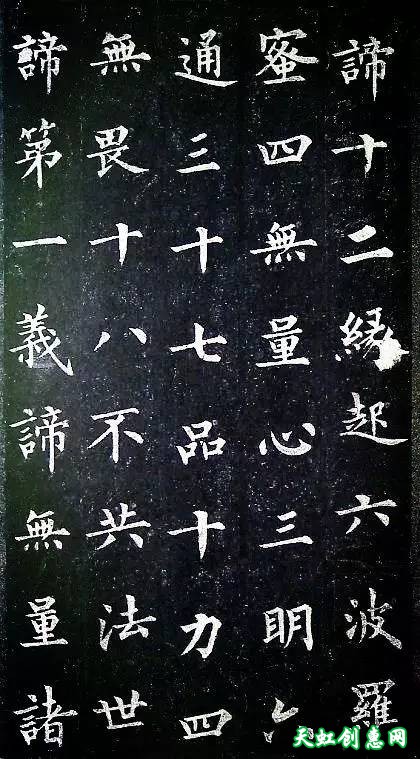 諦十二縁起六波羅
蜜四無量心三明六
通三十七品十力四
無畏十八不共法世
諦第一義諦無量諸
天虹创意网